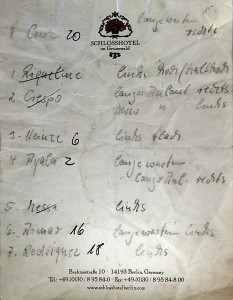 1 Cruz 20 lange warten
rechts
SCHLOSSHOTEL
im Grunewald
1 Riquelme links
2 Crespo langer Anlauf rechts
links
3. Heinze 6 links flach
4 Ayala 2 lange warten
rechts
5. Messi links
6. Aimar 16 lange warten links
7. Rodriguez 18 links
Brahmsstraße 10 · 14193 Berlin, Germany
Tel: +49 (0)30 / 8 95 84-0 · Fax: +49 (0)30 / 8 95 84-8 00
www.schlosshotelberlin.com